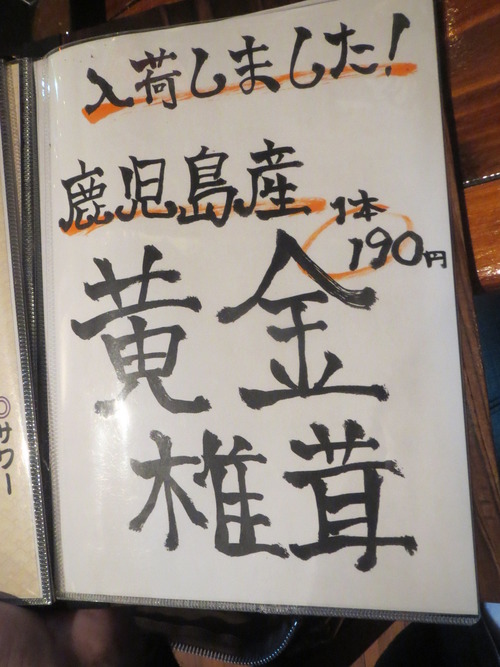 入荷しました!
鹿児島産
1本
190円
黄金
椎茸
◎サワー